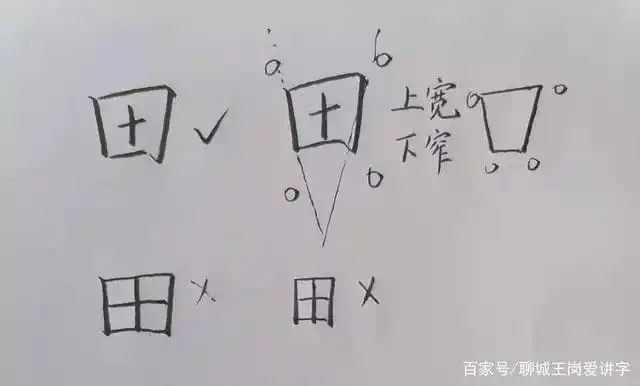 a b
田 ✓ 田 上宽
下窄
田 × 田 ×
百家号/聊城王岗爱讲字